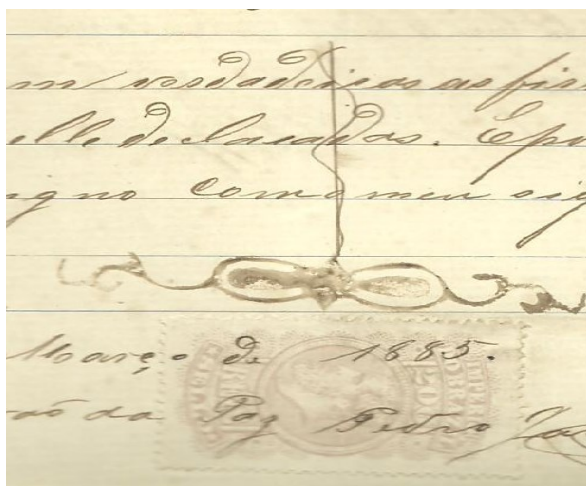 m verdadeiras as fir
elle declaradas. E po
igno com o meu sig
Março de 1885.
da Paz Pedro